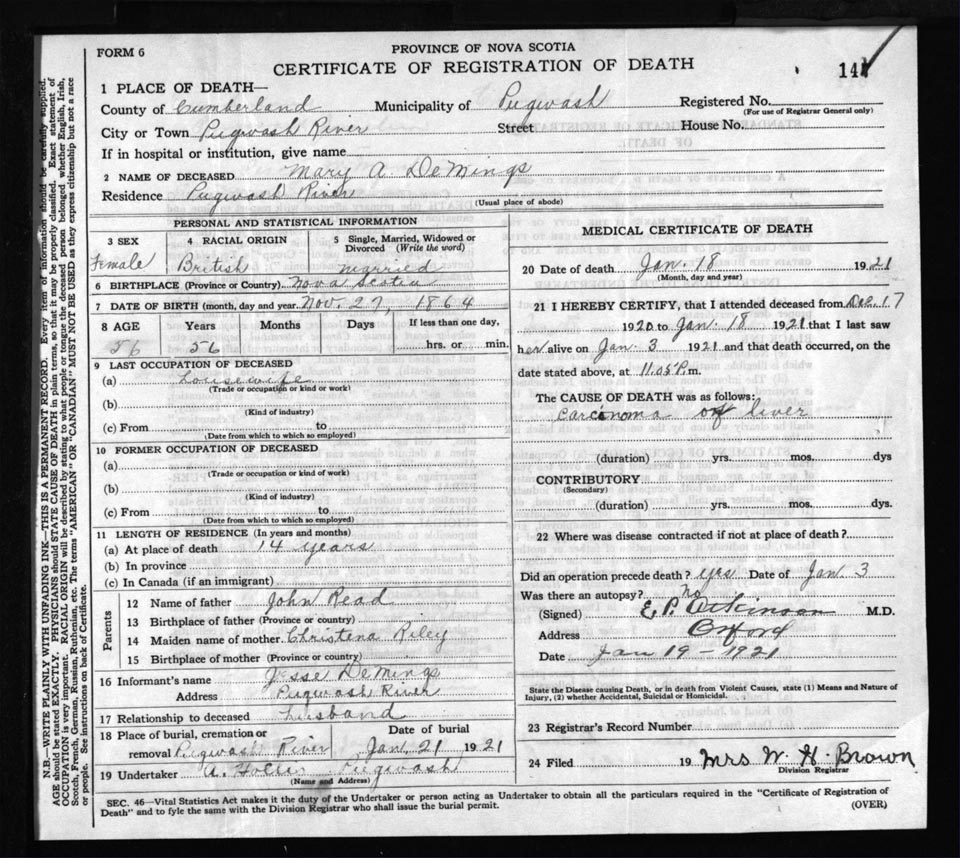 FORM 6
PROVINCE OF NOVA SCOTIA
CERTIFICATE OF REGISTRATION OF DEATH
1 PLACE OF DEATH—
County of Cumberland Municipality of Pugwash Registered No.
(For use of Registrar General only)
City or Town Pugwash River Street House No.
If in hospital or institution, give name
2 NAME OF DECEASED Mary A. DeMings
Residence Pugwash River
(Usual place of abode)
PERSONAL AND STATISTICAL INFORMATION
3 SEX 4 RACIAL ORIGIN 5 Single, Married, Widowed or Divorced (Write the word)
Female British married
6 BIRTHPLACE (Province or Country) Nova Scotia
7 DATE OF BIRTH (month, day and year) Nov. 27, 1864
8 AGE Years Months Days If less than one day,
56 56 hrs. or min.
9 LAST OCCUPATION OF DECEASED
(a) housewife
(Trade or occupation or kind or work)
(b)
(Kind of industry)
(c) From to
(Date from which to which so employed)
10 FORMER OCCUPATION OF DECEASED
(a)
(Trade or occupation or kind of work)
(b)
(Kind of industry)
(c) From to
(Date from which to which so employed)
11 LENGTH OF RESIDENCE (In years and months)
(a) At place of death 14 years
(b) In province
(c) In Canada (if an immigrant)
Parents
12 Name of father John Read
13 Birthplace of father (Province or country)
14 Maiden name of mother Christena Riley
15 Birthplace of mother (Province or country)
16 Informant's name Jesse DeMings
Address Pugwash River
17 Relationship to deceased husband
18 Place of burial, cremation or removal Pugwash River
Date of burial
Jan. 21 1921
19 Undertaker A. Hollis Pugwash
(Name and Address)
MEDICAL CERTIFICATE OF DEATH
20 Date of death Jan. 18 1921
(Month, day and year)
21 I HEREBY CERTIFY, that I attended deceased from Dec. 17
1920 to Jan. 18 1921 that I last saw
her alive on Jan. 3 1921 and that death occurred, on the
date stated above, at 11.05 P.m.
The CAUSE OF DEATH was as follows:
Carcinoma of liver
(duration) yrs. mos. dys
CONTRIBUTORY
(Secondary)
(duration) yrs. mos. dys.
22 Where was disease contracted if not at place of death?
Did an operation precede death? yes Date of Jan. 3
Was there an autopsy? No
(Signed) E. P. Atkinson M.D.
Address Oxford
Date Jan 19 - 1921
State the Disease causing Death, or in death from Violent Causes, state (1) Means and Nature of
Injury, (2) whether Accidental, Suicidal or Homicidal.
23 Registrar's Record Number
24 Filed 19 Mrs W. H. Brown
Division Registrar
SEC. 46—Vital Statistics Act makes it the duty of the Undertaker or person acting as Undertaker to obtain all the particulars required in the "Certificate of Registration of
Death" and to fyle the same with the Division Registrar who shall issue the burial permit.
(OVER)
N.B.—WRITE PLAINLY, WITH UNFADING INK—THIS IS A PERMANENT RECORD. Every item of information should be carefully supplied.
AGE should be stated EXACTLY. PHYSICIANS should STATE CAUSE OF DEATH in plain terms, so that it may be properly classified. Exact statement of
OCCUPATION is very important. RACIAL ORIGIN will be described by stating to what people or tongue the deceased person belonged whether English, Irish,
Scotch, French, German, Russian, Ruthenian, etc. The terms "AMERICAN" or "CANADIAN" MUST NOT BE USED as they express citizenship but not a race
or people. See instructions on back of Certificate.